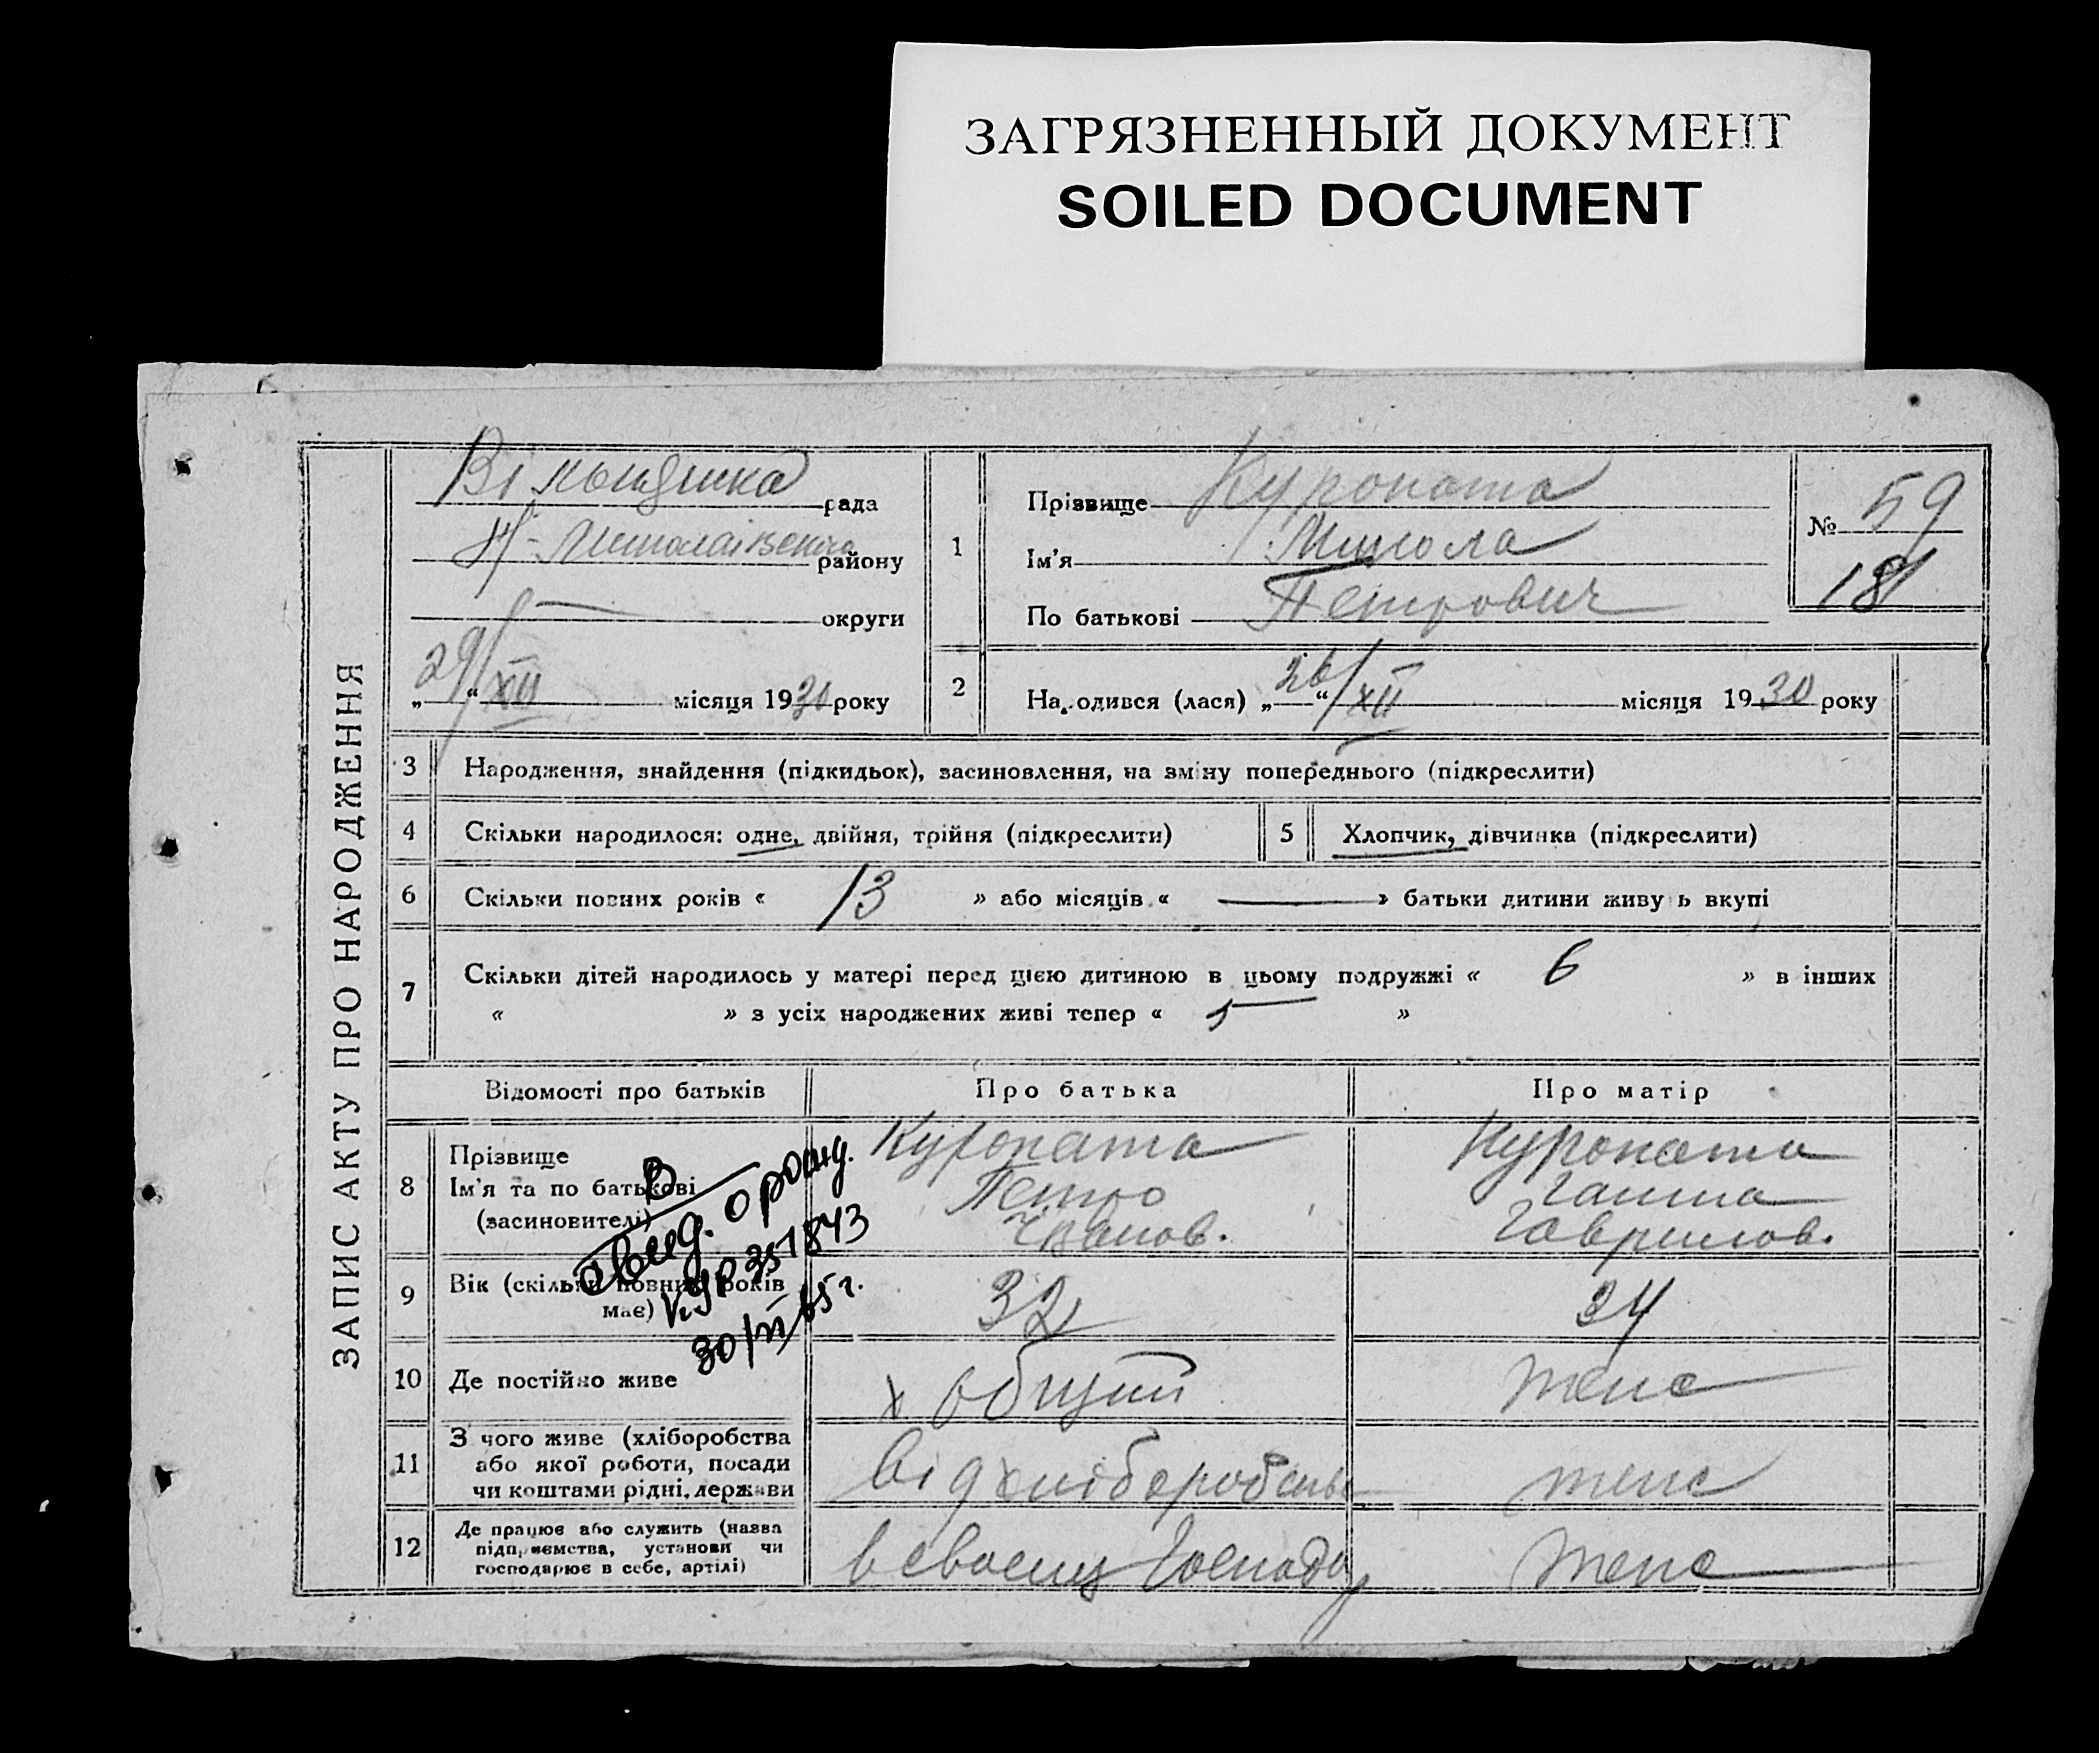 ЗАГРЯЗНЕННЫЙ ДОКУМЕНТ
SOILED DOCUMENT
ЗАПИС АКТУ ПРО НАРОДЖЕННЯ
рада
Н-Миколаївського району
округи
„29“ XII місяця 1930 року
1
Прізвище Куропата
Ім'я Микола
По батькові Петрович
№ 59
181
2
Народився (лася) „26“ XII місяця 1930 року
3 Народження, знайдення (підкидьок), засиновлення, на зміну попереднього (підкреслити)
4 Скільки народилося: одне, двійня, трійня (підкреслити)
5 Хлопчик, дівчинка (підкреслити)
6 Скільки повних років « 13 » або місяців « — » батьки дитини живуть вкупі
7 Скільки дітей народилось у матері перед цією дитиною в цьому подружжі « 6 » в інших
« » з усіх народжених живі тепер « 5 »
Відомості про батьків Про батька Про матір
8 Прізвище
Ім'я та по батькові
(засиновителі)
Куропата
Петро
Іванов.
Куропата
Ганна
Гаврилов.
В
свид. о рожд.
351843
9 Вік (скільки повних років
має)
32
34
10 Де постійно живе
х общий
теж
11 З чого живе (хліборобства
або якої роботи, посади
чи коштами рідні, держави
від хліборобства
теж
12 Де працює або служить (назва
підприємства, установи чи
господарює в себе, артілі)
в своему господ
теж